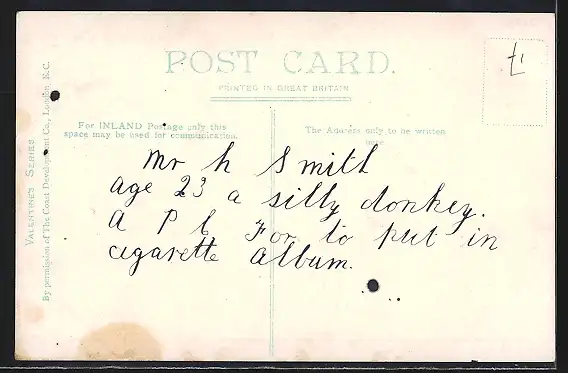 POST CARD.
PRINTED IN GREAT BRITAIN
For INLAND Postage only this
space may be used for communication.
The Address only to be written
VALENTINE'S SERIES
By permission of The Coast Development Co., London, E.C.
Mr h Smith
age 23 a silly donkey.
a P C For to put in
cigarette album.